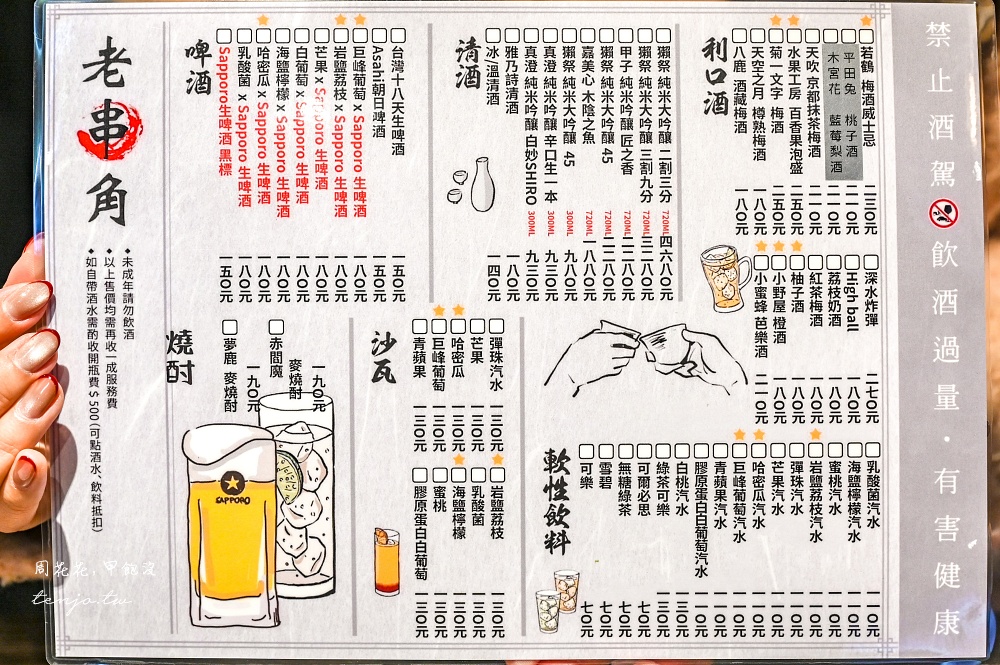 禁止酒駕 飲酒過量・有害健康
利口酒
若鶴 梅酒威士忌 二三〇元
平田兔 桃子酒 二一〇元
木宮花 藍莓梨酒 二一〇元
天吹 京都抹茶梅酒 二一〇元
水果工房 百香果泡盛 二五〇元
菊一文字 梅酒 二五〇元
天空之月 樽熟梅酒 一八〇元
八鹿 酒藏梅酒 一八〇元
深水炸彈 二七〇元
High ball 一八〇元
荔枝奶酒 一八〇元
紅茶梅酒 一八〇元
柚子酒 一八〇元
小野屋 橙酒 一八〇元
小蜜蜂 芭樂酒 二一〇元
清酒
獺祭 純米大吟釀 二割三分 720ML 四六八〇元
獺祭 純米大吟釀 三割九分 720ML 三二八〇元
甲子 純米吟釀 匠之香 720ML 二二八〇元
獺祭 純米大吟釀 45 720ML 二二八〇元
嘉美心 木陰之魚 720ML 一八八〇元
獺祭 純米大吟釀 45 300ML 九八〇元
真澄 純米吟釀 辛口生一本 300ML 九三〇元
真澄 純米吟釀 白妙SHIRO 300ML 九三〇元
雅乃詩清酒 一八〇元
冰/溫清酒 一四〇元
啤酒
台灣十八天生啤酒 一五〇元
Asahi朝日啤酒 一五〇元
巨峰葡萄 x Sapporo 生啤酒 一八〇元
岩鹽荔枝 x Sapporo 生啤酒 一八〇元
芒果 x Sapporo 生啤酒 一八〇元
白葡萄 x Sapporo 生啤酒 一八〇元
海鹽檸檬 x Sapporo 生啤酒 一八〇元
哈密瓜 x Sapporo 生啤酒 一八〇元
乳酸菌 x Sapporo 生啤酒 一八〇元
Sapporo生啤酒 黑標 一五〇元
軟性飲料
乳酸菌汽水 一一〇元
海鹽檸檬汽水 一一〇元
蜜桃汽水 一一〇元
岩鹽荔枝汽水 一一〇元
彈珠汽水 一一〇元
芒果汽水 一一〇元
哈密瓜汽水 一一〇元
巨峰葡萄汽水 一一〇元
青蘋果汽水 一一〇元
膠原蛋白白葡萄汽水 一一〇元
白桃汽水 一三〇元
綠茶可樂 一三〇元
可爾必思 七〇元
無糖綠茶 七〇元
雪碧 七〇元
可樂 七〇元
沙瓦
彈珠汽水 一三〇元
芒果 一三〇元
哈密瓜 一三〇元
巨峰葡萄 一三〇元
青蘋果 一三〇元
岩鹽荔枝 一三〇元
乳酸菌 一三〇元
海鹽檸檬 一三〇元
蜜桃 一三〇元
膠原蛋白白葡萄 一三〇元
燒酎
赤閻魔 麥燒酎 一九〇元
夢鹿 麥燒酎 一九〇元
SAPPORO
老串角
◆未成年請勿飲酒
◆以上售價均需再收一成服務費
◆如自帶酒水需酌收開瓶費$500(可點酒水、飲料抵扣)
周花花,甲飽沒
tenjo.tw